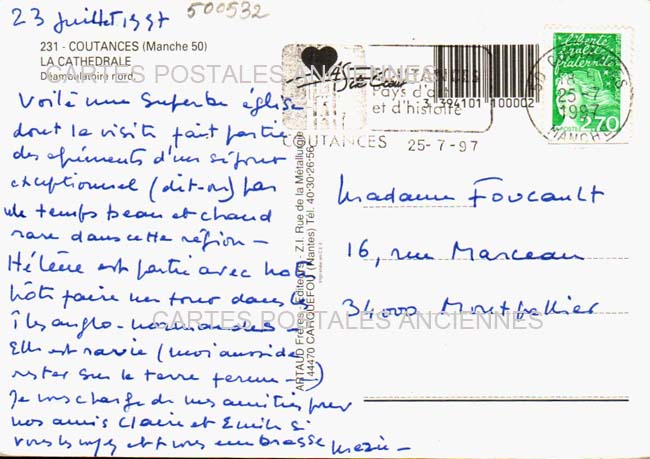 23 juillet 1997
500532
231 - COUTANCES (Manche 50)
LA CATHEDRALE
Déambulatoire nord.
CARTES POSTALES ANCIENNES
Voilà une superbe église
dont la visite fait partie
des agréments d'un séjour
exceptionnel (dit-on) par
le temps beau et chaud
rare dans cette région -
Hélène est partie avec nos
hôtes faire un tour dans les
îles anglo-normandes -
Elle est ravie (moi aussi de
rester sur la terre ferme -)
Je vous charge de mes amitiés pour
nos amis Claire et Emile si
vous les voyez et vous embrasse
COUTANCES
Pays d'art
et d'histoire
3 394101 100002
COUTANCES 25-7-97
50 COUTANCES
18 H
25-7
1997
MANCHE
liberté
égalité
fraternité
LA POSTE
2,70
ARTAUD Frères, Editeurs - Z.I. Rue de la Métallurgie
44470 CARQUEFOU (Nantes) Tél. 40.30.26.56
Madame Foucault
16, rue Marceau
34000 Montpellier
CARTES POSTALES ANCIENNES